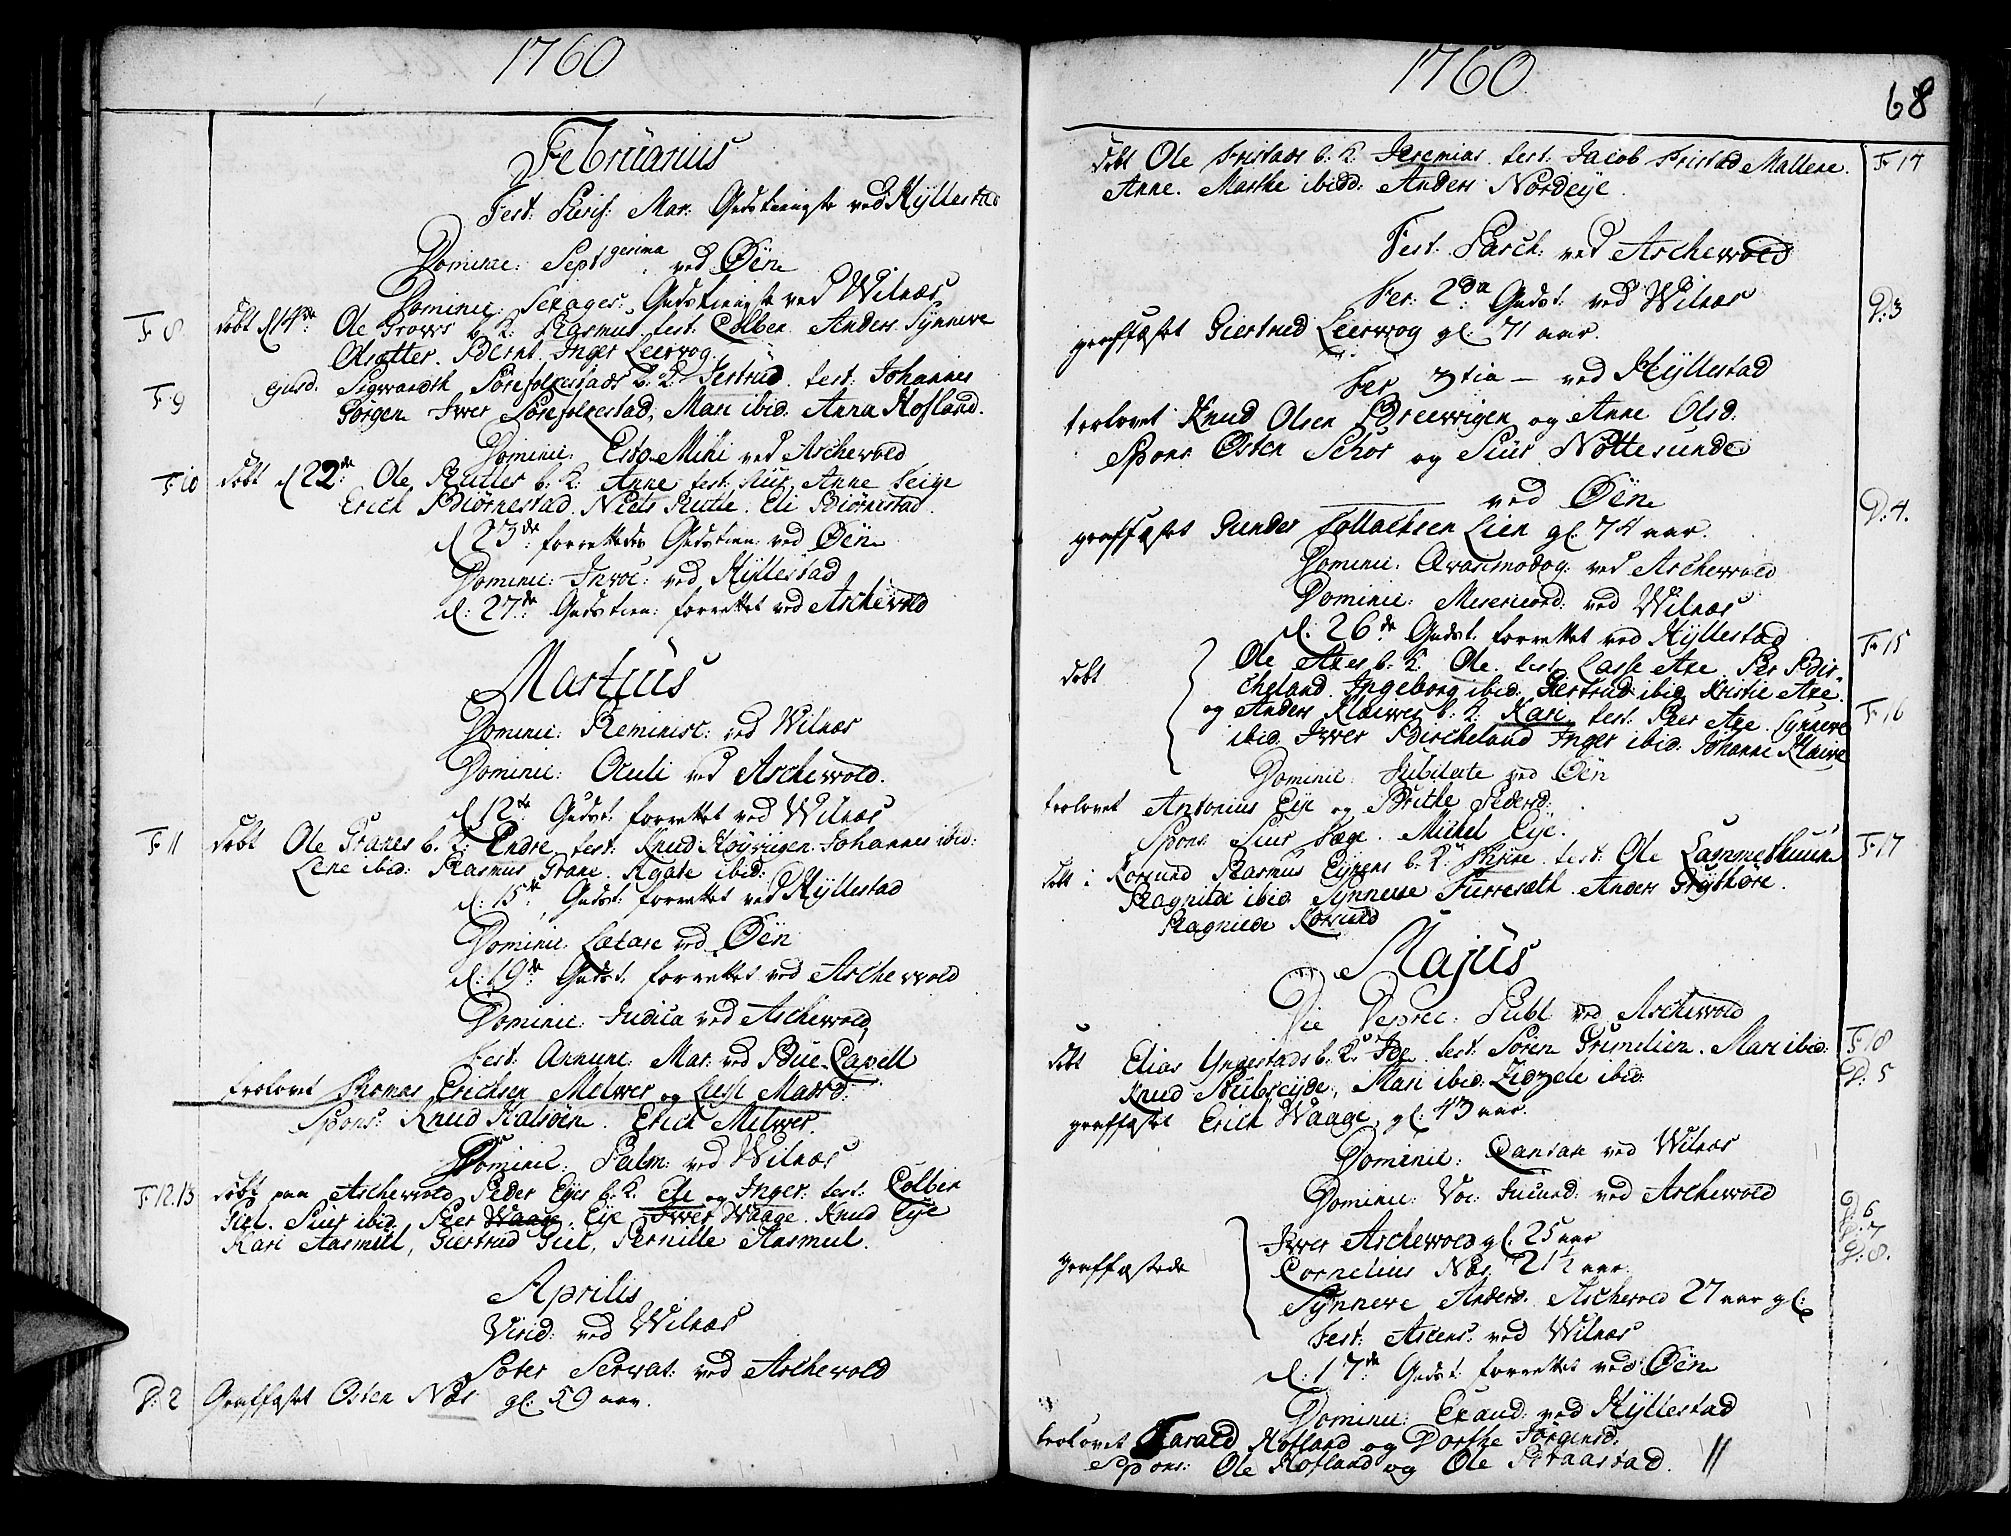 1760
Februarius
Fest: Purif: Mar: Gudstienste ved Hyllestad
Dominic: Septgesima ved Øen
Dominic: Sexages: Gudstienste ved Wilnæs
F 8 døbt d 14de Ole Grovs b. K. Rasmus. test: Colben Anders Synneve
Otsætter. Bernt. Inger Leervog
F 9 Sigwardth Sørefolkestads b: K. Jertrud. test: Johannes
Sørgen Iver Sørefolkestad, Mari ibid. Anna Hofland.
Dominic: Esto Mihi ved Aschevold
F 10 døbt d 22de Ole Rutles b. K: Anne test: Anne Seije
Erich Biørnestad. Niels Rutle. Eli Biørnestad.
d 23de forrettedes Gudstien: ved Øen
Dominic: Invoc: ved Hyllestad
d: 27de Gudstien: forrettet ved Aschevold
Martius
Dominic: Reminisc: ved Wilnæs
Dominic: Oculi ved Aschewold.
d 12te Gudst: forrettet ved Wilnæs
F 11 døbt Ole Granes b. K: Endre test: Knud Høyvigen. Johannes ibid:
Lene ibid: Rasmus Grane. Agate ibid:
d: 15de Gudst: forrettet ved Hyllestad
Dominic: Lætare ved Øen
d: 19de Gudst: forrettet ved Aschewold
Dominic: Judica ved Aschewold
Fest: Annunc: Mar: ved Bue-Capell
trolovet Thomas Erichsen Melwer og Lisl Madsd:
Spons: Knud Halsøen. Erich Melwer.
Dominic: Palm: ved Wilnæs
F 12.13 døbt paa Aschewold Peder Eyes b. K. Ele og Inger: test: Colben
Giel. Siur ibid. Peer Waage. Eye Iwer Waage. Knud Eye
Kari Aasmul, Giertrud Giel, Pernille Aasmul.
Aprilis
Virid: ved Wilnæs
Soter Servat: ved Aschewold
D: 2 Graffæstet Osten Næs gl: 59 aar.
1760
68
døbt Ole Fristads b. K. Jeremias. test: Jacob Fristad Mallene. F 14
Anne. Marthe ibidd: Anders Nordeye.
Fest: Pasch: ved Aschewold
Fer: 2da Gudst: ved Wilnæs
graffæstet Giertrud Leerwog gl: 71 aar. D: 3
Fer 3tia — ved Hyllestad
trolovet Knud Olsen Breewigen og Anne Olsd:
Spons Osten Schor og Siur Nottesunde
ved Øen
graffæstet Gunder Tollachsen Lien gl: 74 aar. D: 4.
Dominic: Qvasimodog: ved Aschewold
Dominic: Misericord: ved Wilnæs
d: 26de Gudst: forrettet ved Hyllestad
døbt Ole Axes b. K. Ole. test Lasse Axe Per Bir- F 15
cheland. Ingeborg ibid: Giertrud ibid Kristi Axe.
og Anders Klaiwes b: K: Kari. test: Peer Axe. Synneve F 16
ibid. Iwer Bircheland Inger ibid. Johanne Klaiwe
Dominic: Jubilate ved Øen
trolovet Antonius Eye og Brithe Pedersd:
Spons Siur Hage. Michel Eye.
døbt i Korsund Rasmus Eynens b: K: test: Ole Lammethuun F 17
Ragnilde ibid Synneve Furresæth. Anders Grytthøre.
Ragnilde Korsund
Majus
Die Deprec: Publ ved Aschewold
døbt Elias Yngestads b. K. Joe test: Sören Grimelien. Mari ibid: F 18
Knud Nubseyde, Mari ibid. Zidzele ibid: D: 5
graffæstet Erich Waage gl: 43 aar.
Dominic: Cantate ved Wilnæs
Dominic: Voc: Jucund: ved Aschewold
graffæstede Iwer Aschewold gl: 25 aar D 6
Cornelius Næs 21½ aar D: 7
Synneve Anders. Aschewold 27 aar gl: D: 8.
Fest: Ascens: ved Wilnæs
d: 17de Gudst: forrettet ved Øen
Dominic: Exaud: ved Hyllestad
trolovet Harald Hofland og Dorthe Jörgensd:
Spons: Ole Hofland og Ole Straastad. //